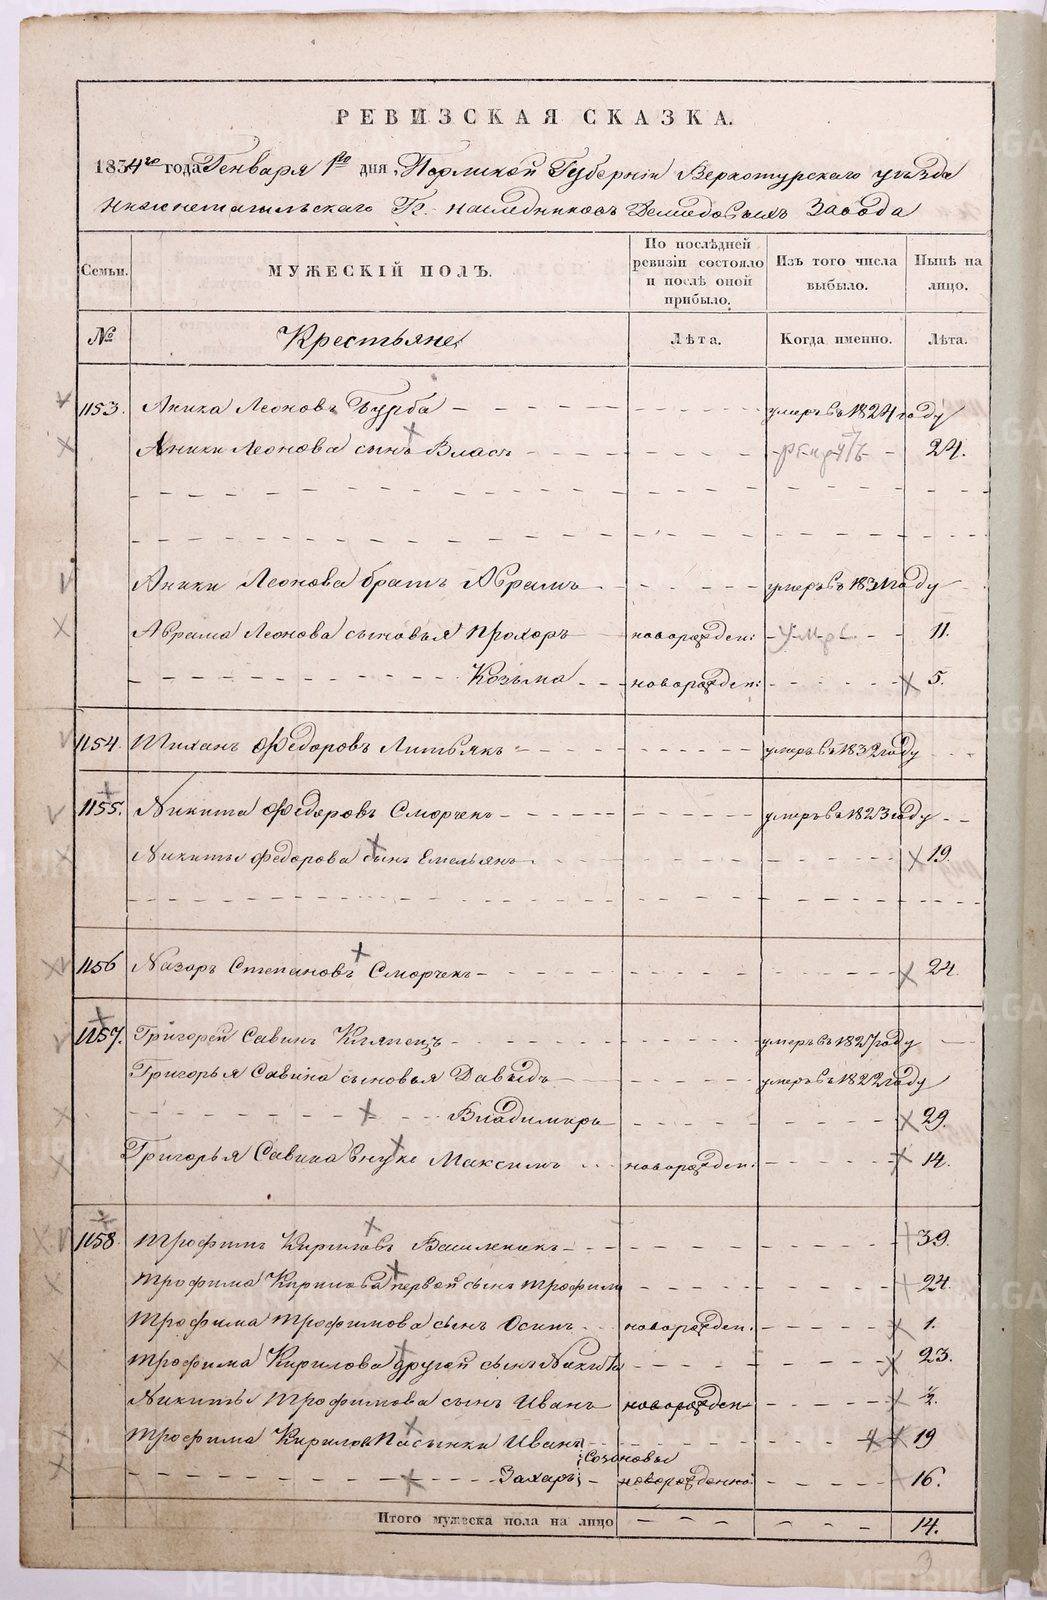 РЕВИЗСКАЯ СКАЗКА.
1834го года Генваря 1го дня, Пермской Губернiи Верхотурскаго уѣзда
Нижнетагильскаго Гг. наследниковъ Демидовыхъ Завода
Семьи. МУЖЕСКIЙ ПОЛЪ. По послѣдней ревизiи состояло и послѣ оной прибыло. Изъ того числа выбыло. Нынѣ на лицо.
№ Крестьяне, Лѣта. Когда именно. Лѣта.
1153. Аника Леоновъ Бурба умеръ въ 1824 году
Аники Леонова сынъ Власъ 24.
Аники Леонова братъ Абрамъ умеръ въ 1831 году
Абрама Леонова сыновья Прохоръ новорожден: умер 11.
Козьма новорожден: 5.
1154. Тиханъ Федоровъ умеръ въ 1832 году
1155. Никита Федоровъ Сморчекъ умеръ въ 1823 году
Никиты Федорова сынъ Емельянъ 19.
1156 Назаръ Степановъ Сморчекъ 24.
1157. Григорей Савинъ умеръ въ 1827 году
Григорья Савина сыновья Давыдъ умеръ въ 1822 году
Владимиръ 29.
Григорья Савина внукъ Максимъ новорожден: 14.
1158. Трофимъ Кириловъ 39.
Трофима Кирилова первой сынъ Трофимъ 24.
Трофима Трофимова сынъ Осипъ новорожден: 1.
Трофима Кирилова другой сынъ Никита 23.
Никиты Трофимова сынъ Иванъ новорожден ½.
Трофима Кирилова Пасынки Иванъ 19
Созоновы
Захаръ новорожденной: 16.
Итого мужеска пола на лицо 14.
3
METRIKI.GASO-URAL.RU